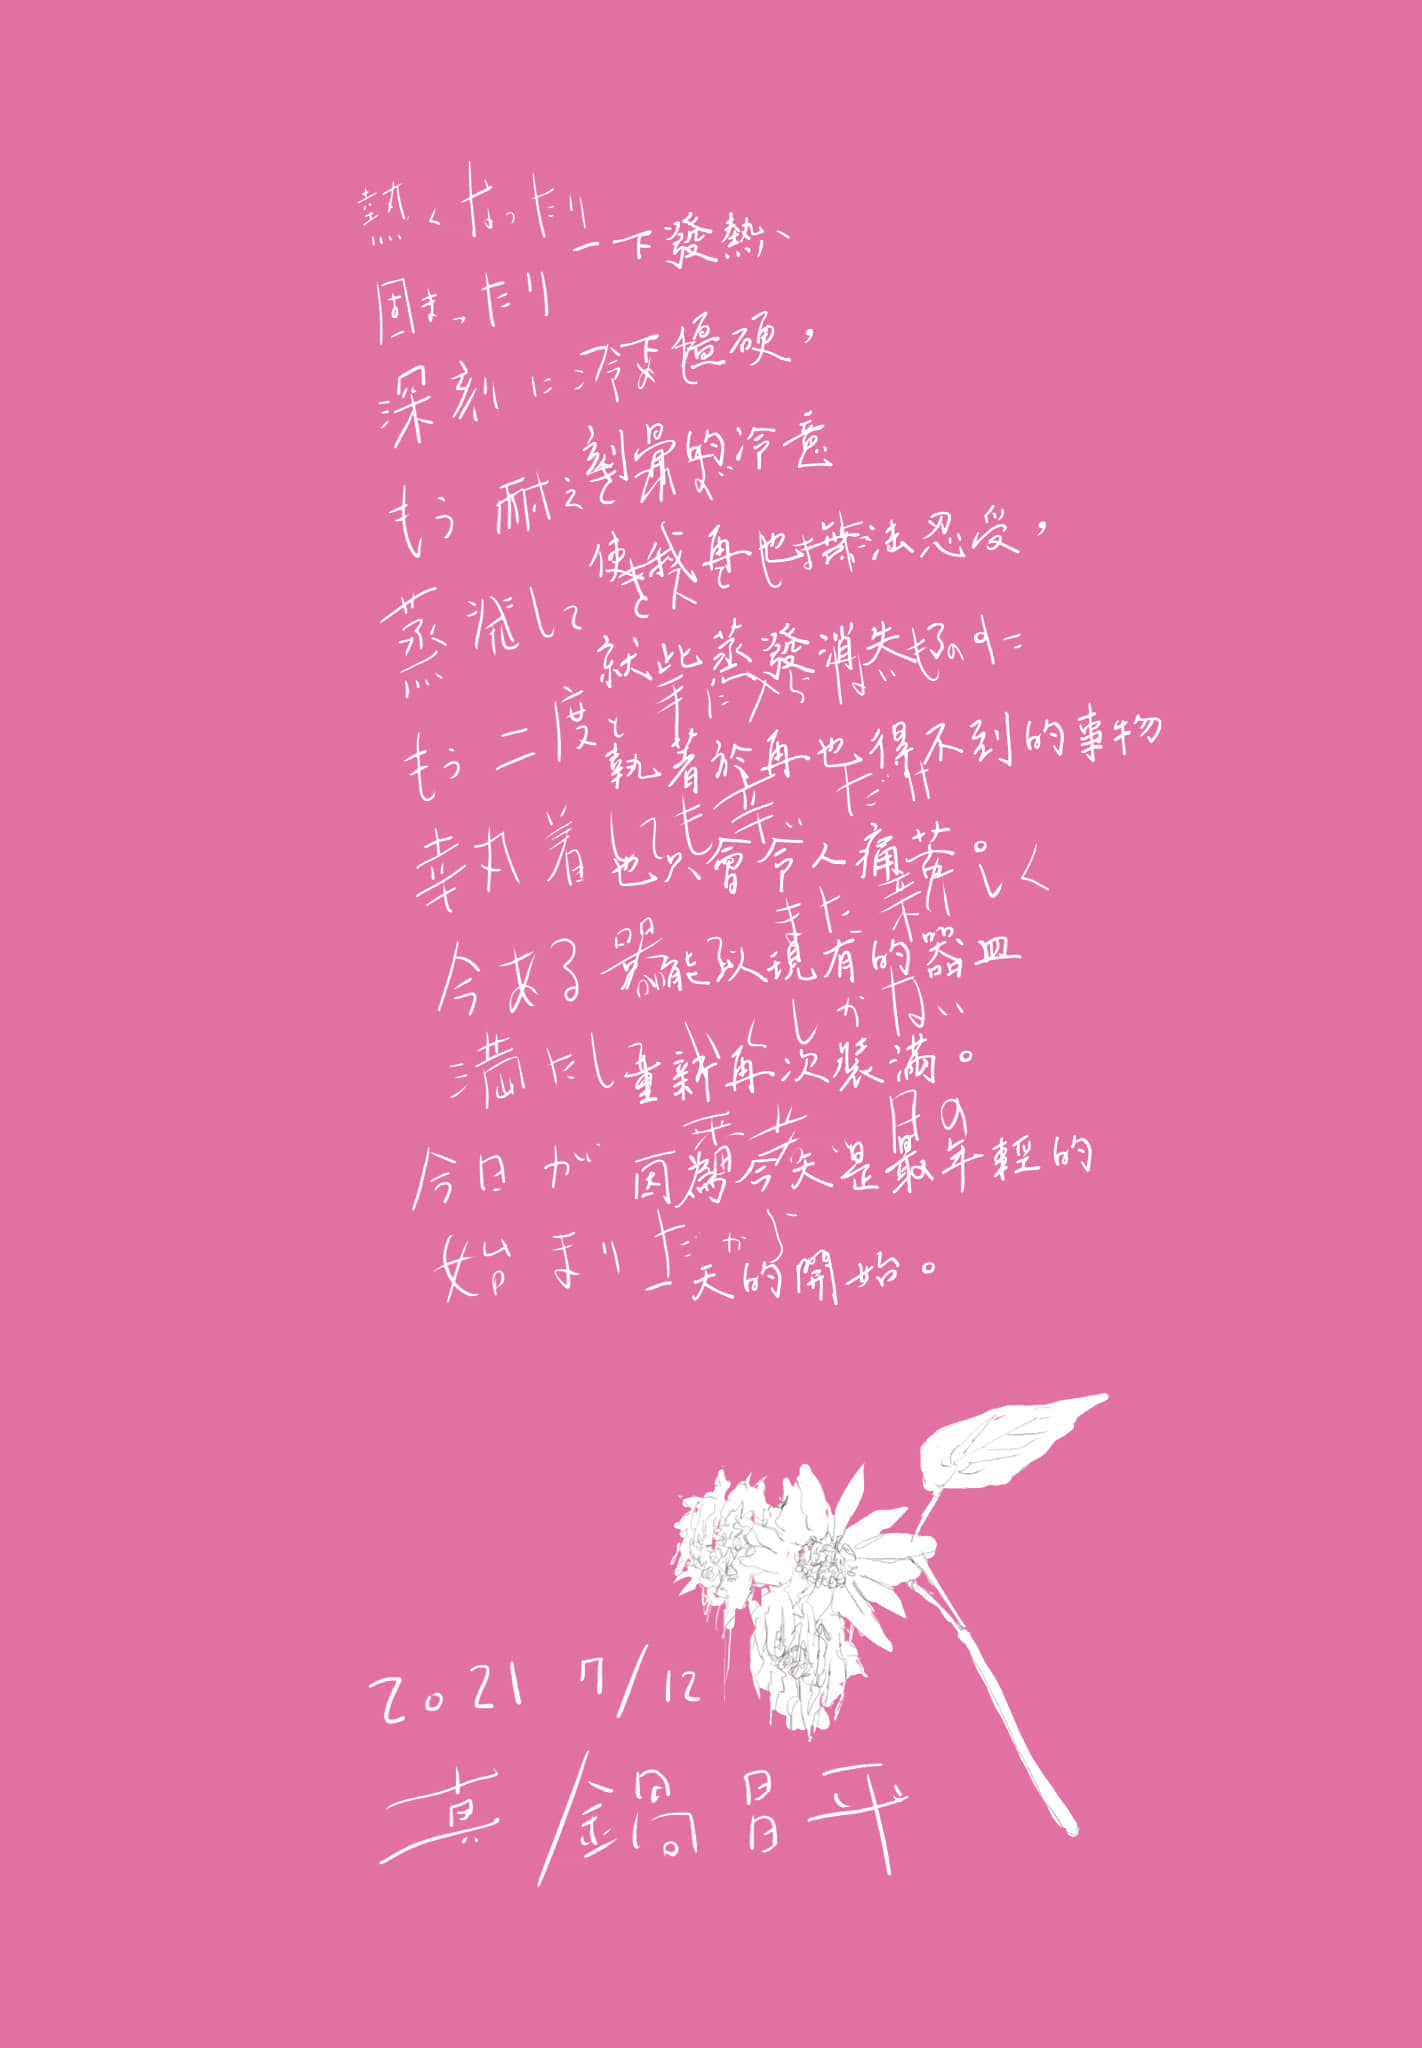 熱くなったり
一下發熱、
固まったり
一下僵硬，
深刻に冷め
刻骨的冷意
もう耐え
使我再也無法忍受，
蒸発して
就此蒸發消失
もう二度と手に入らないものに
執著於再也得不到的事物
執着しても辛いだけ
也只會令人痛苦。
今ある器が また新しく
能以現有的器皿
満たしいくしかない
重新再次裝滿。
今日が 日の
因為今天是最年輕的
始まりだから
一天的開始。
2021 7/12
真鍋昌平